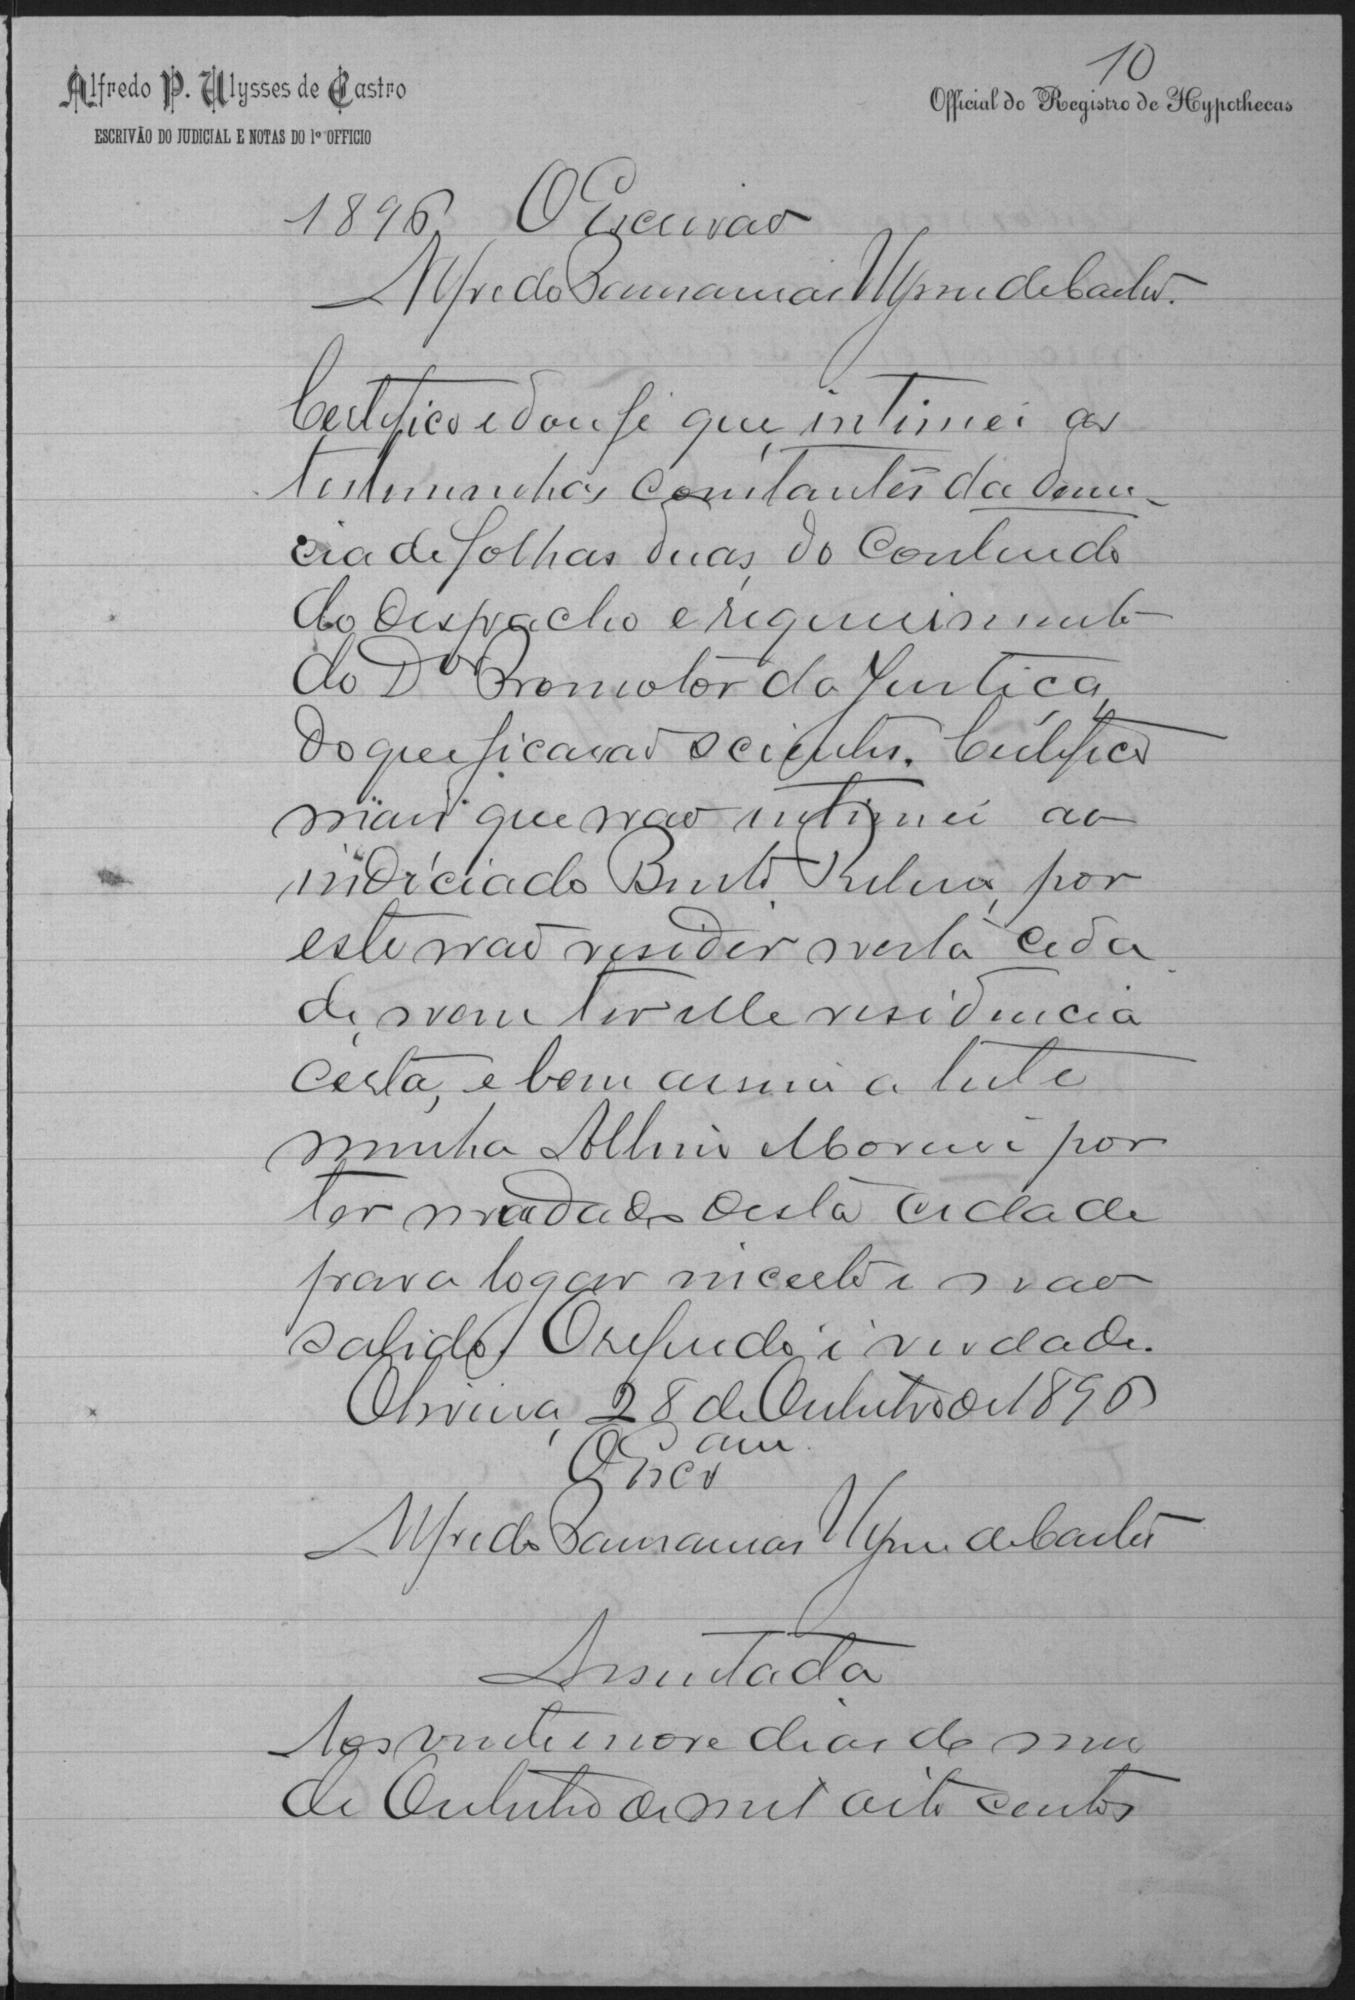 10
Alfredo P. Ulysses de Castro
Official do Registro de Hypothecas
ESCRIVÃO DO JUDICIAL E NOTAS DO 1º OFFICIO
1896 O Escrivão
Alfredo Ulysses de Castro.
Certifico e dou fé que intimei as
testemunhas constantes da denun-
cia de folhas duas, do conteudo
do despacho e requerimento
do Dor Promotor da Justiça,
do que ficarão scientes. Certifico
mais que não intimei ao
indiciado Bento, por
este não residir nesta cida
de, nem ter elle residencia
certa, e bem assim a teste
munha Albino Moreira por
ter mudado desta cidade
para logar incerto e não
sabido. O referido é verdade.
Oliveira, 28 de Outubro de 1896
O Escram
Alfredo Ulysses de Castro
Assentada
Aos vinte e nove dias do mez
de Outubro de mil oito centos